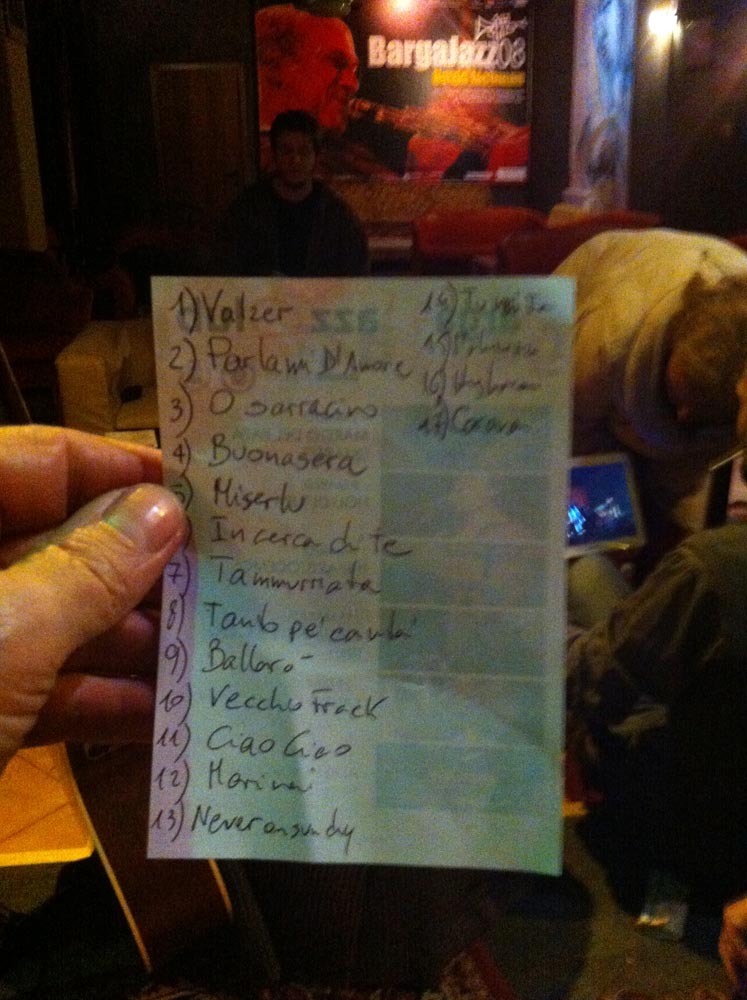 BargaJazz08
1) Valzer
2) Parlami D'Amore
3) O sarracino
4) Buonasera
5) Miserlu
In cerca di te
7) Tammurriata
8) Tanto pe' canta'
9) Ballarò
10) Vecchio Frack
11) Ciao Ciao
12) Marinai
13) Never on sundy
14)
15)
16)
17) Caravan